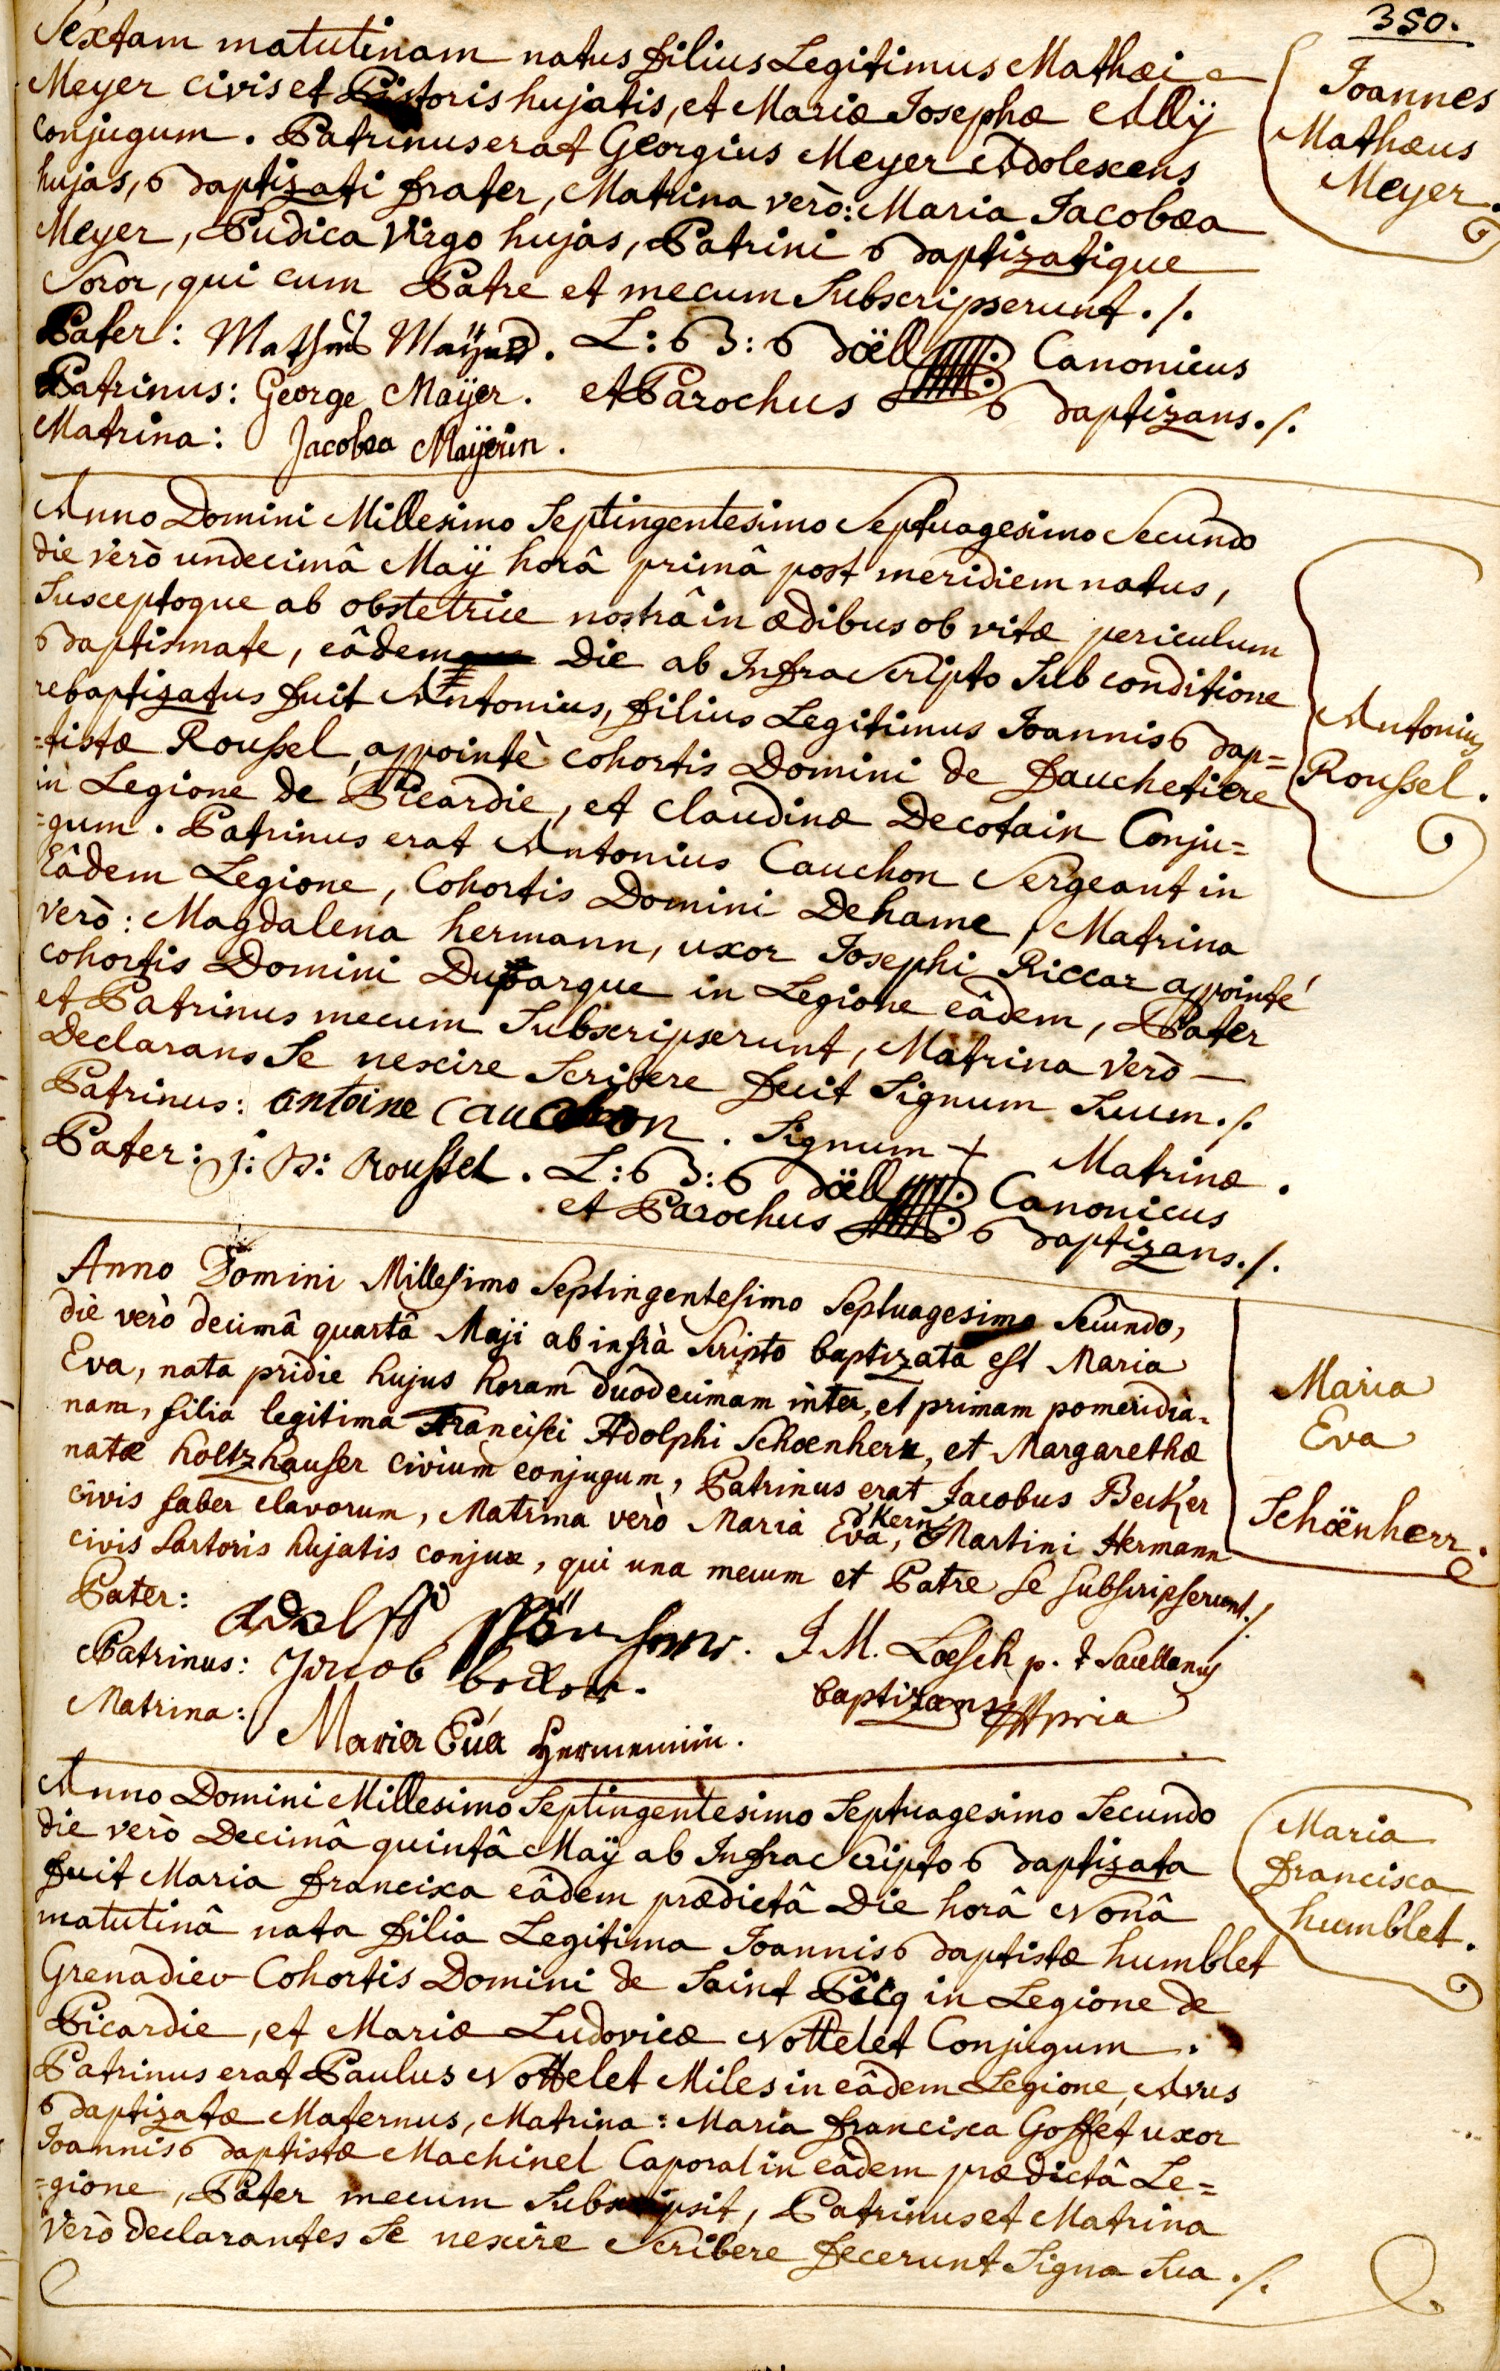 350.
Sextam matutinam natus filius Legitimus Mathæi
Meyer civis et Pistoris hujatis, et Mariæ Josephæ Ally
conjugum. Patrinus erat Georgius Meyer Adolescens
hujas, Baptizati frater, Matrina verò: Maria Jacobæa
Meyer, Pudica Virgo hujas, Patrini Baptizatique
Soror, qui cum Patre et mecum Subscripserunt ./.
Joannes
Mathæus
Meyer.
Pater: Mathæs Maÿer. L: B: Böell Canonicus
Patrinus: George Maÿer. et Parochus Baptizans ./.
Matrina: Jacobea Maÿerin.
Anno Domini Millesimo Septingentesimo Septuagesimo Secundo
die verò undecimâ Maÿ horâ primâ post meridiem natus,
Susceptoque ab obstetrice nostrâ in ædibus ob vitæ periculum
Baptismate, eâdem die ab Infra Scripto Sub conditione
rebaptizatus fuit Antonius, filius Legitimus Joannis Bap=
=tistæ Roussel, appointè cohortis Domini de Fauchetiere
in Legione de Picardie, et Claudinæ Decotain Conju=
=gum. Patrinus erat Antonius Cauchon Sergeant in
Eâdem Legione, Cohortis Domini Dehame, Matrina
verò: Magdalena hermann, uxor Josephi Riccar appointé
cohortis Domini Duparque in Legione eâdem, Pater
et Patrinus mecum Subscripserunt, Matrina verò
Declarans Se nescire Scribere fecit Signum Suum ./.
Antonius
Roussel.
Patrinus: antoine Cauchon. Signum + Matrinæ.
Pater: j: B: Roussel. L: B: Böell Canonicus
et Parochus Baptizans ./.
Anno Domini Millesimo Septingentesimo Septuagesimo Secundo,
die verò decimâ quartâ Maji ab infrà Scripto baptizata est Maria
Eva, nata pridie hujus horam duodecimam inter, et primam pomeridia-
nam, filia legitima Francisci Adolphi Schoenherr, et Margarethæ
natæ holtzhauser civium conjugum, Patrinus erat Jacobus Becker
civis faber clavorum, Matrina verò Maria Eva Kern, Martini Hermann
civis Sartoris hujatis conjux, qui una mecum et Patre se subscripserunt ./.
Maria
Eva
Schöenherr.
Pater: Adolff Schönherr. J M. Loesch p. t Sacellanus
Patrinus: Jacob becker. baptizans mppria
Matrina: Maria Eúa Hermennin.
Anno Domini Millesimo Septingentesimo Septuagesimo Secundo
die verò Decimâ quintâ Maÿ ab Infra Scripto Baptizata
fuit Maria francisca eâdem prædictâ Die horâ Nonâ
matutinâ nata filia Legitima Joannis Baptistæ humblet
Grenadier Cohortis Domini de Saint Pilq in Legione de
Picardie, et Mariæ Ludovicæ Nottelet Conjugum.
Patrinus erat Paulus Nottelet Miles in eâdem Legione, Avus
Baptizatæ Maternus, Matrina: Maria francisca Goffet uxor
Joannis Baptistæ Machinel Caporal in eâdem prædictâ Le=
=gione, Pater mecum Subscripsit, Patrinus et Matrina
verò declarantes Se nescire Scribere fecerunt Signa Sua ./.
Maria
francisca
humblet.